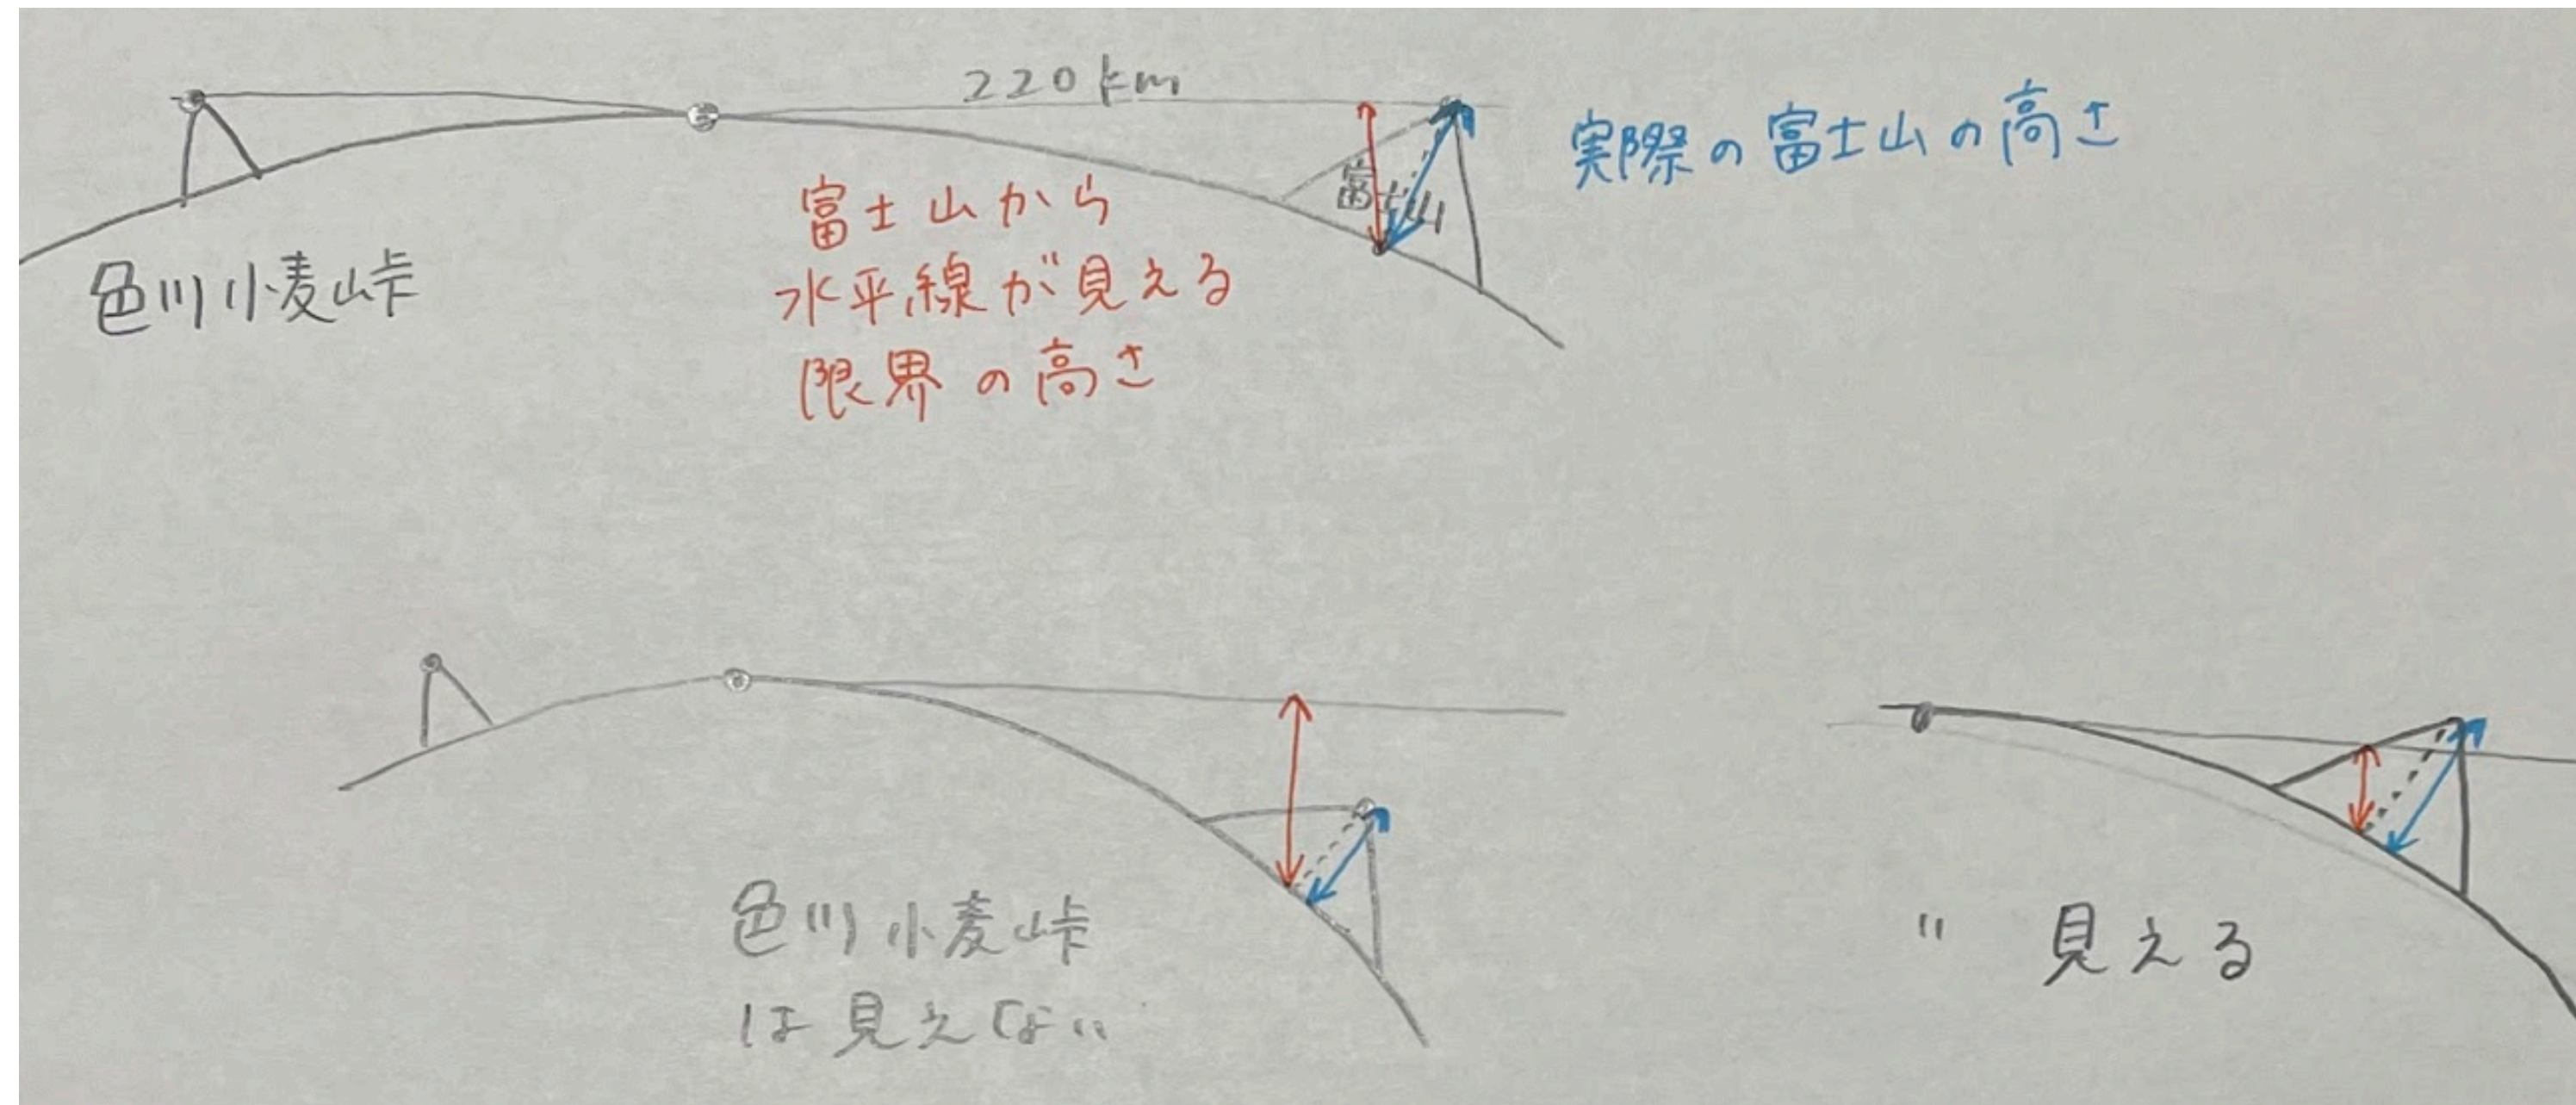 220km
実際の富士山の高さ
富士山
富士山から
水平線が見える
限界の高さ
色川小麦峠
色川小麦峠
は見えない
〃 見える